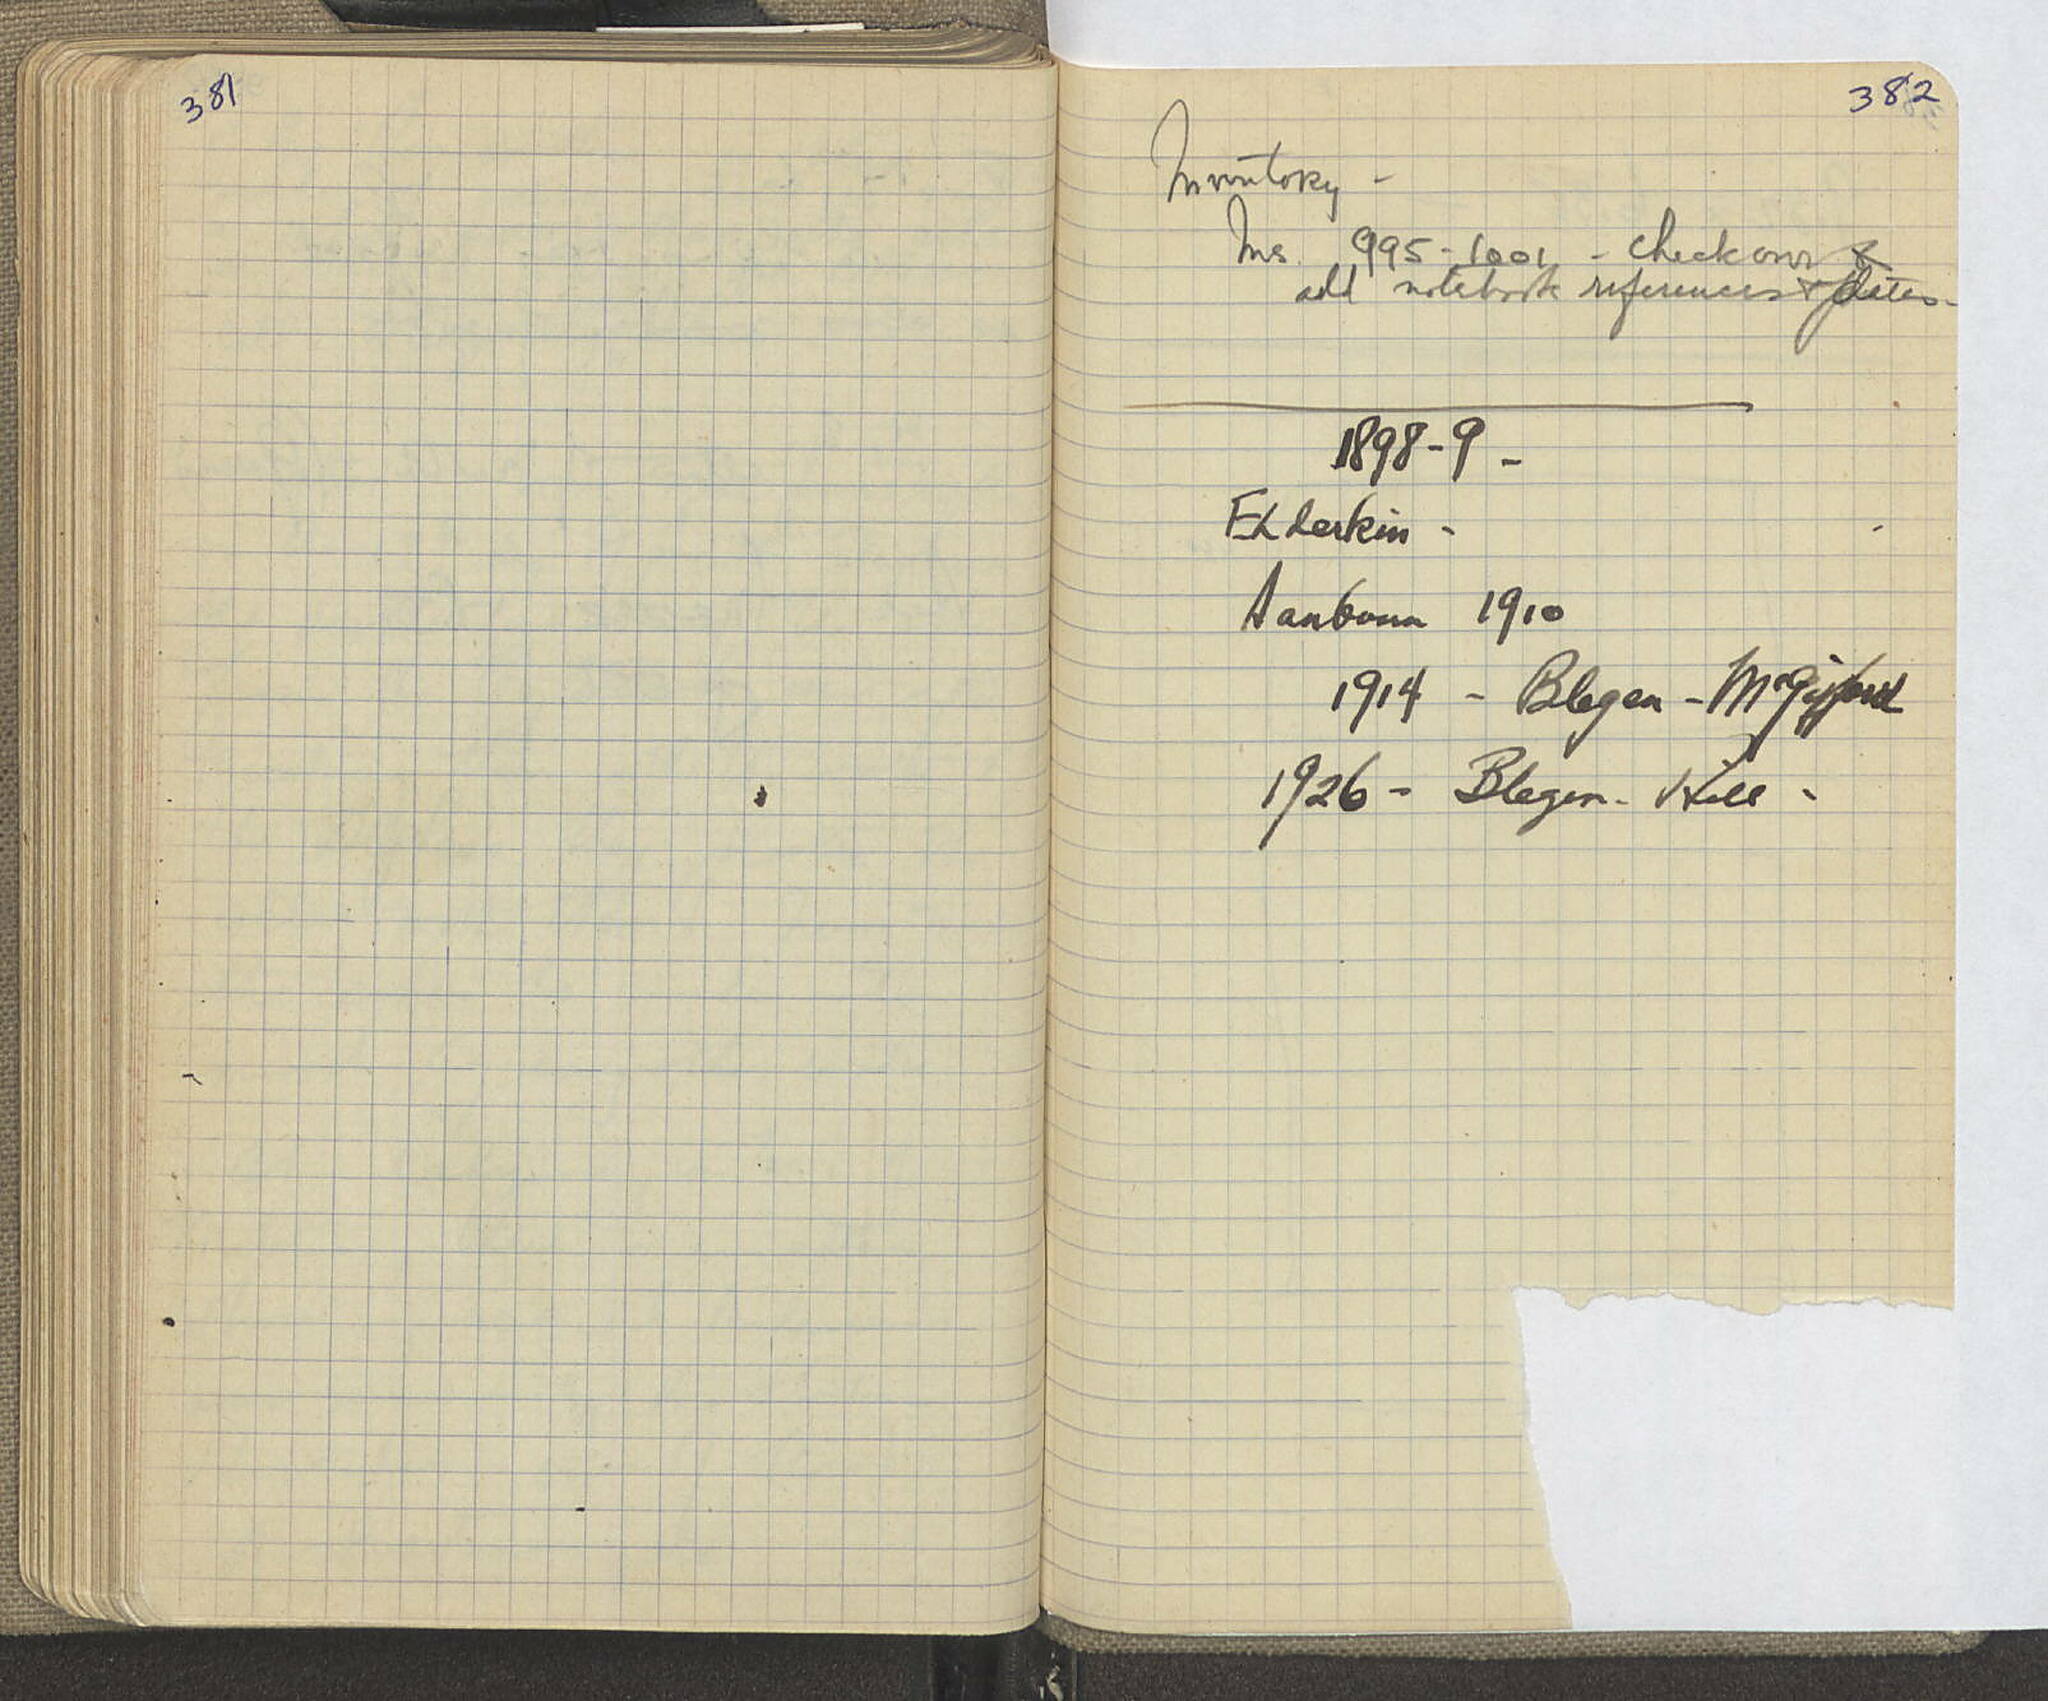 381
382
Inventory -
Ms. 995-1001 - check over &
add notebook references & dates -
1898-9 -
Elderkin -
Sanborn 1910
1914 - Blegen - McGifford
1926 - Blegen - Hill -